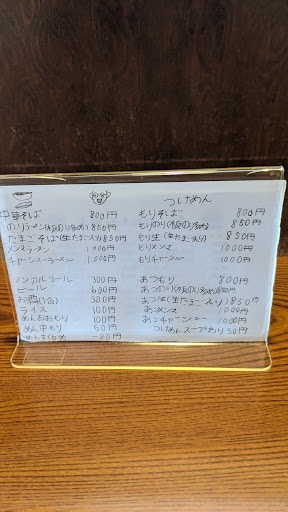 中華そば 800円
のりラーメン(板のり多め)850円
たまごそば(生たまご入り)850円
メンマラーメン 1000円
チャーシューラーメン 1000円
ノンアルコール 300円
ビール 600円
お酒(1合) 300円
ライス 100円
めんおおもり 100円
めん中もり 50円
めんすくなめ -50円
つけめん
もりそば 800円
もりのり(板のり多め) 850円
もり生(生たまご入り) 850円
もりメンマ 1000円
もりチャーシュー 1000円
あつもり 800円
あつのり(板のり多め)850円
あつ生(生たまご入り)850円
あつメンマ 1000円
あつチャーシュー 1000円
つけめんスープわり 50円